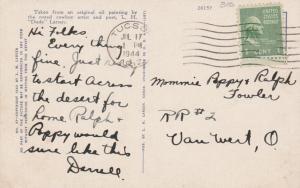 Taken from an original oil painting by
the noted cowboy artist and poet, L. H.
"Dude" Larsen.
Hi Folks.
Every thing
fine. Just
to start across
the desert for
home. Ralph &
Poppy would
sure like this
Darrell.
TUCSON
JUL 17
1 PM
1944
Mommie Poppy & Ralph
Fowler
RR #2
Van Wert, O.